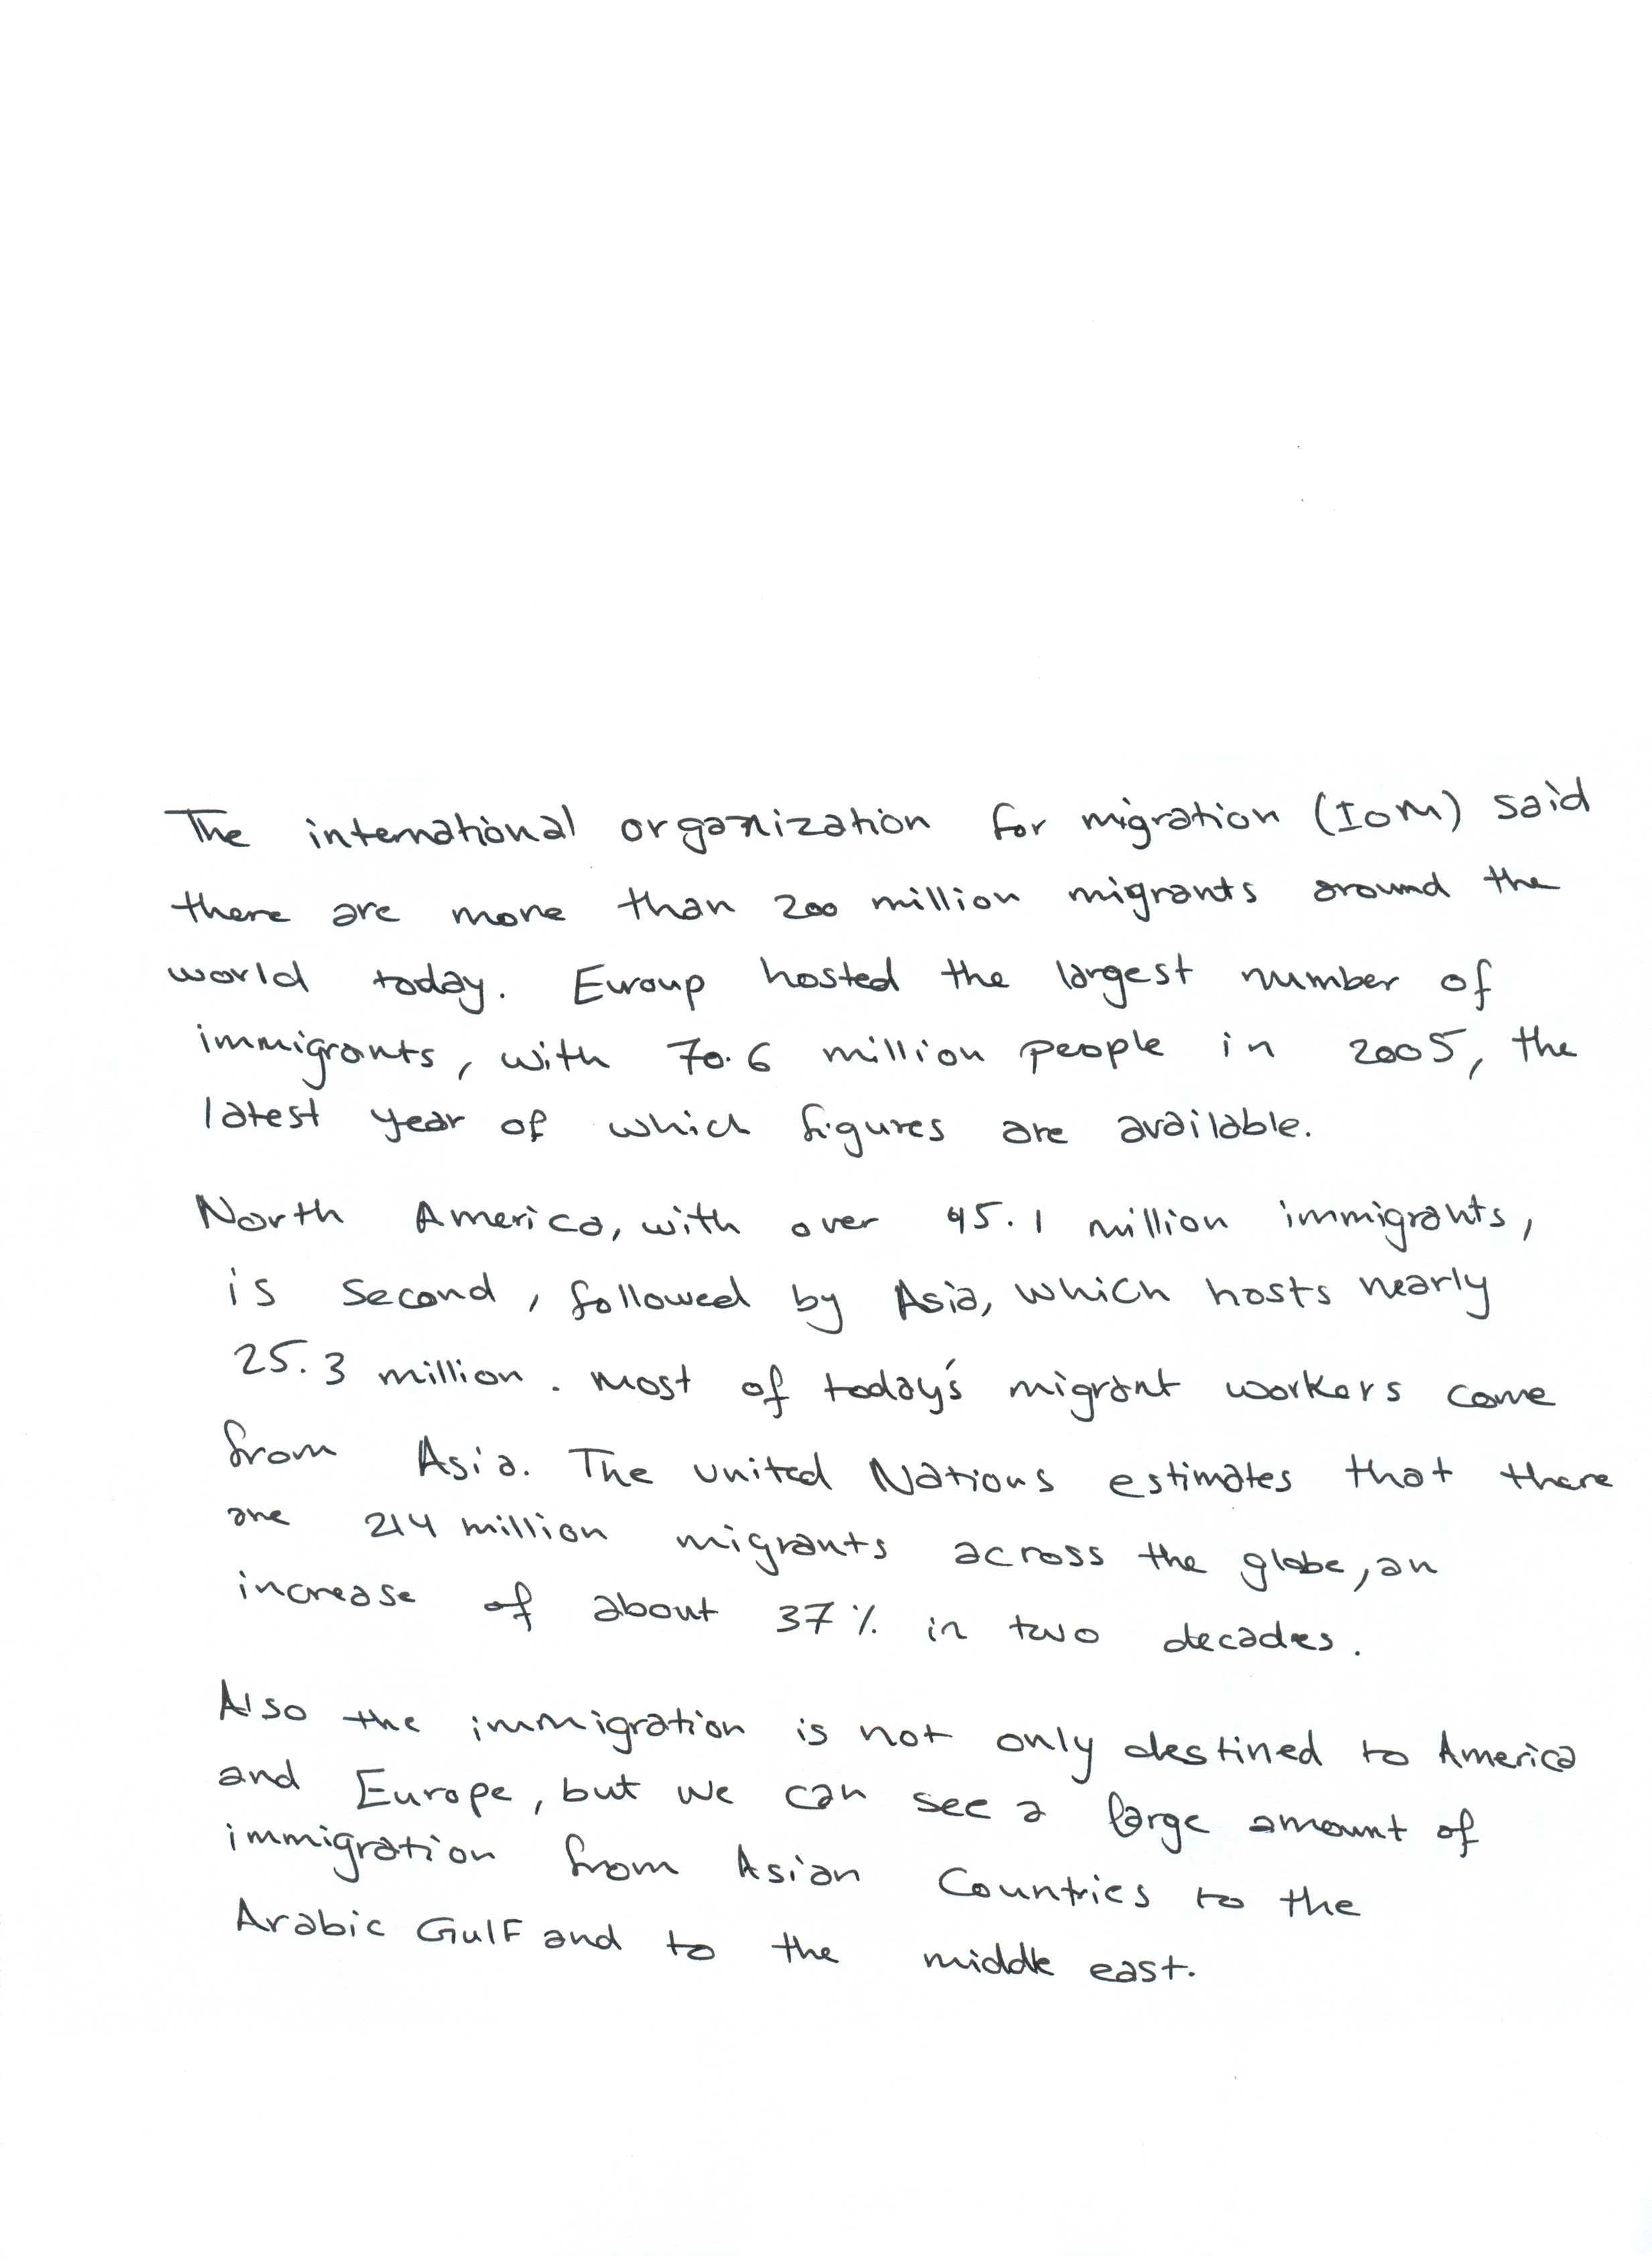 The international organization for migration (IOM) said
there are more than 200 million migrants around the
world today. Euroup hosted the largest number of
immigrants, with 70.6 million people in 2005, the
latest year of which figures are available.
North America, with over 45.1 million immigrants,
is second, followed by Asia, which hosts nearly
25.3 million. most of today's migrant workers come
from Asia. The united Nations estimates that there
are 214 million migrants across the globe, an
increase of about 37% in two decades.
Also the immigration is not only destined to America
and Europe, but we can see a large amount of
immigration from Asian Countries to the
Arabic Gulf and to the middle east.